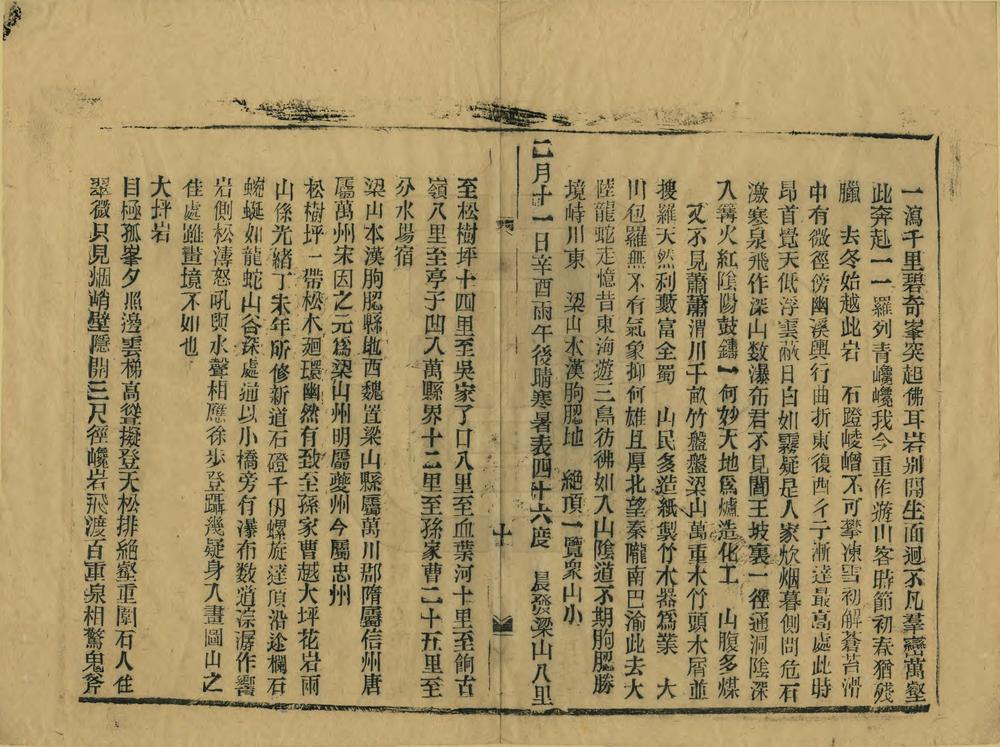 一瀉千里碧奇峯突起佛耳岩别開生面迥不凡羣巒萬壑
此奔赴一一羅列青巉巉我今重作遊山客時節初春猶殘
臘　去冬始越此岩　石蹬崚嶒不可攀凍雪初解蒼苔滑
中有微徑傍幽溪輿行曲折東復西彳亍漸達最高處此時
昂首覺天低浮雲蔽日白如霧疑是人家炊烟暮側問危石
激寒泉飛作深山数瀑布君不見閻王坡裏一徑通洞陰深
入篝火紅陰陽鼓鑄一何妙天地爲爐造化工　山腹多煤
又不見蕭蕭渭川千畝竹盤盤梁山萬重木竹頭木屑並
搜羅天然利藪富全蜀　山民多造紙製竹木器爲業　大
川包羅無不有氣象抑何雄且厚北望秦隴南巴渝此去大
陸龍蛇走憶昔東海遊三島彷彿如入山陰道不期朐䏰勝
境峙川東　梁山本漢朐䏰地　絕頂一覽衆山小
二月十一日辛酉雨午後晴寒暑表四十六度　晨發梁山八里
十
至松樹坪十四里至吳家了口八里至血葉河十里至餉古
嶺八里至亭子凹入萬縣界十二里至孫家曹二十五里至
分水場宿
梁山本漢朐䏰縣地西魏置梁山縣屬萬川郡隋屬信州唐
屬萬州宋因之元爲梁山州明屬夔州今屬忠州
松樹坪一帶松木廻環幽然有致至孫家曹越大坪花岩兩
山係光緒丁未年所修新道石磴千仞螺旋達頂沿途欄石
蜿蜒如龍蛇山谷深處通以小橋旁有瀑布数道淙潺作響
岩側松濤怒吼與水聲相應徐步登躡幾疑身入畫圖山之
佳處雖畫境不如也
大坪岩
目極孤峯夕照邊雲梯高聳擬登天松排絕壑重圍石人住
翠微只見烟峭壁隱開三尺徑巉岩飛渡百重泉相驚鬼斧